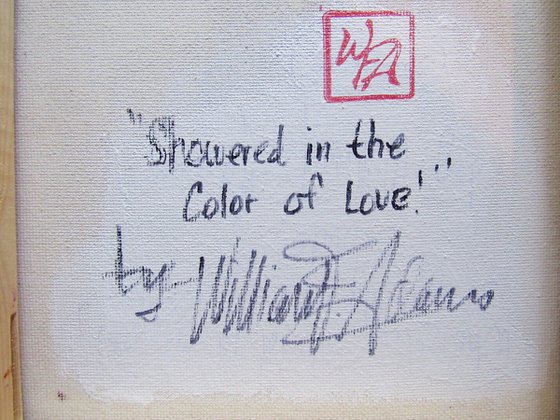 WFA
"Showered in the
Color of Love!"
by William F. Adams